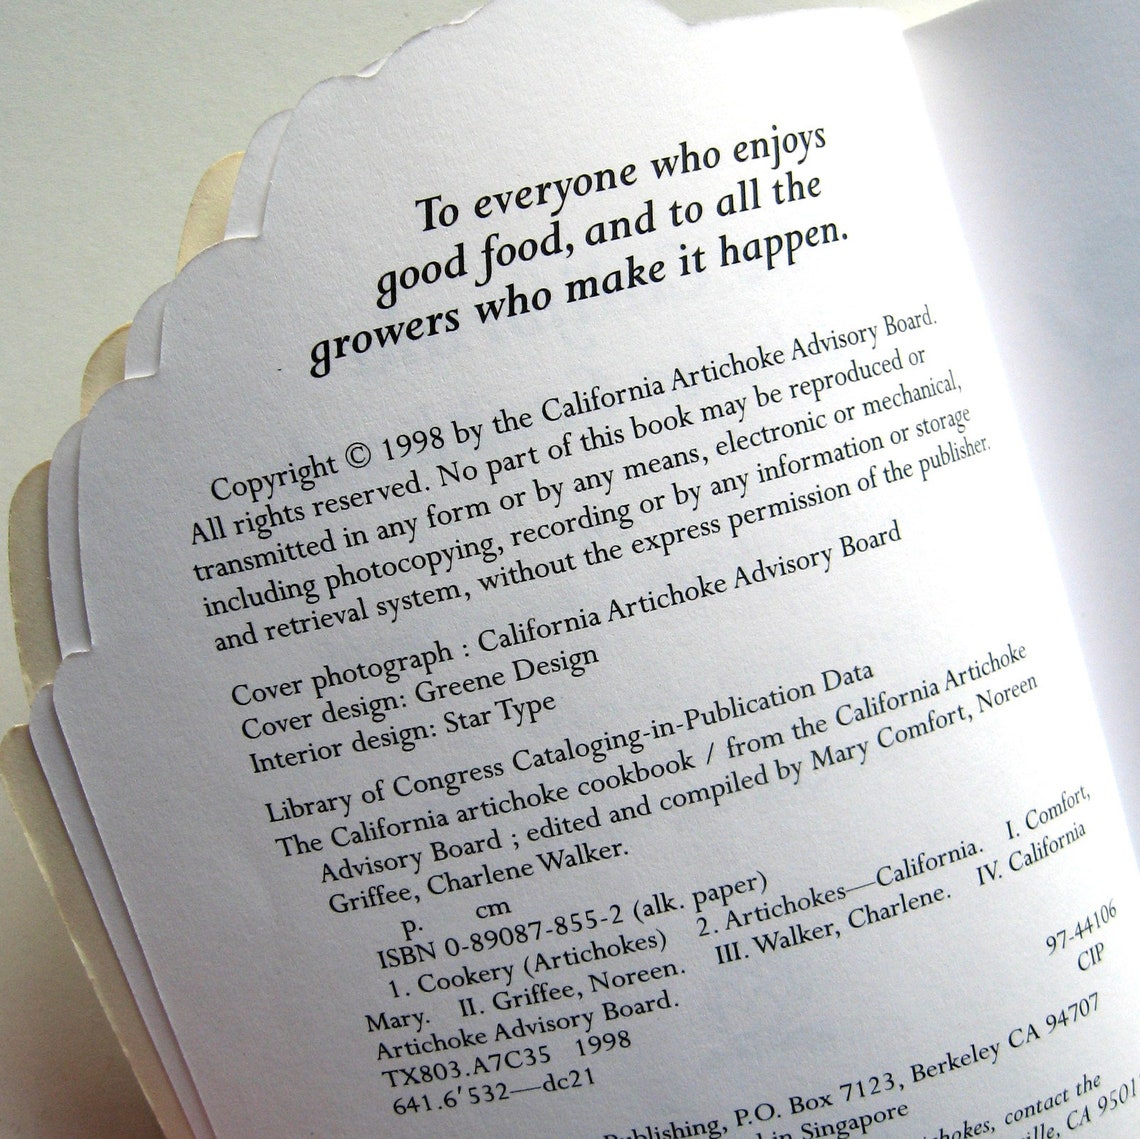 To everyone who enjoys
good food, and to all the
growers who make it happen.
Copyright © 1998 by the California Artichoke Advisory Board.
All rights reserved. No part of this book may be reproduced or
transmitted in any form or by any means, electronic or mechanical,
including photocopying, recording or by any information or storage
and retrieval system, without the express permission of the publisher.
Cover photograph : California Artichoke Advisory Board
Cover design: Greene Design
Interior design: Star Type
Library of Congress Cataloging-in-Publication Data
The California artichoke cookbook / from the California Artichoke
Advisory Board ; edited and compiled by Mary Comfort, Noreen
Griffee, Charlene Walker.
p. cm
ISBN 0-89087-855-2 (alk. paper)
1. Cookery (Artichokes) 2. Artichokes—California. I. Comfort,
Mary. II. Griffee, Noreen. III. Walker, Charlene. IV. California
Artichoke Advisory Board.
TX803.A7C35 1998
641.6'532—dc21
97-44106
CIP
Publishing, P.O. Box 7123, Berkeley CA 94707
in Singapore
contact the
CA 9501